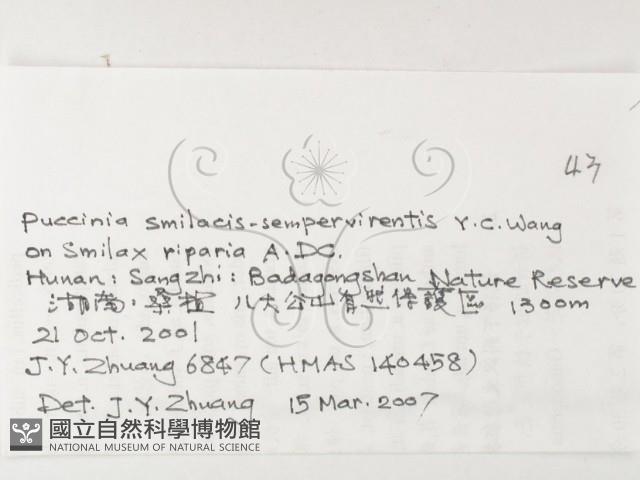 43
Puccinia smilacis-sempervirentis Y.C. Wang
on Smilax riparia A. DC.
Hunan: Sangzhi: Badagongshan Nature Reserve
湖南: 桑植 八大公山自然保護區 1300m
21 Oct. 2001
J.Y. Zhuang 6847 (HMAS 140458)
Det. J.Y. Zhuang 15 Mar. 2007
國立自然科學博物館
NATIONAL MUSEUM OF NATURAL SCIENCE